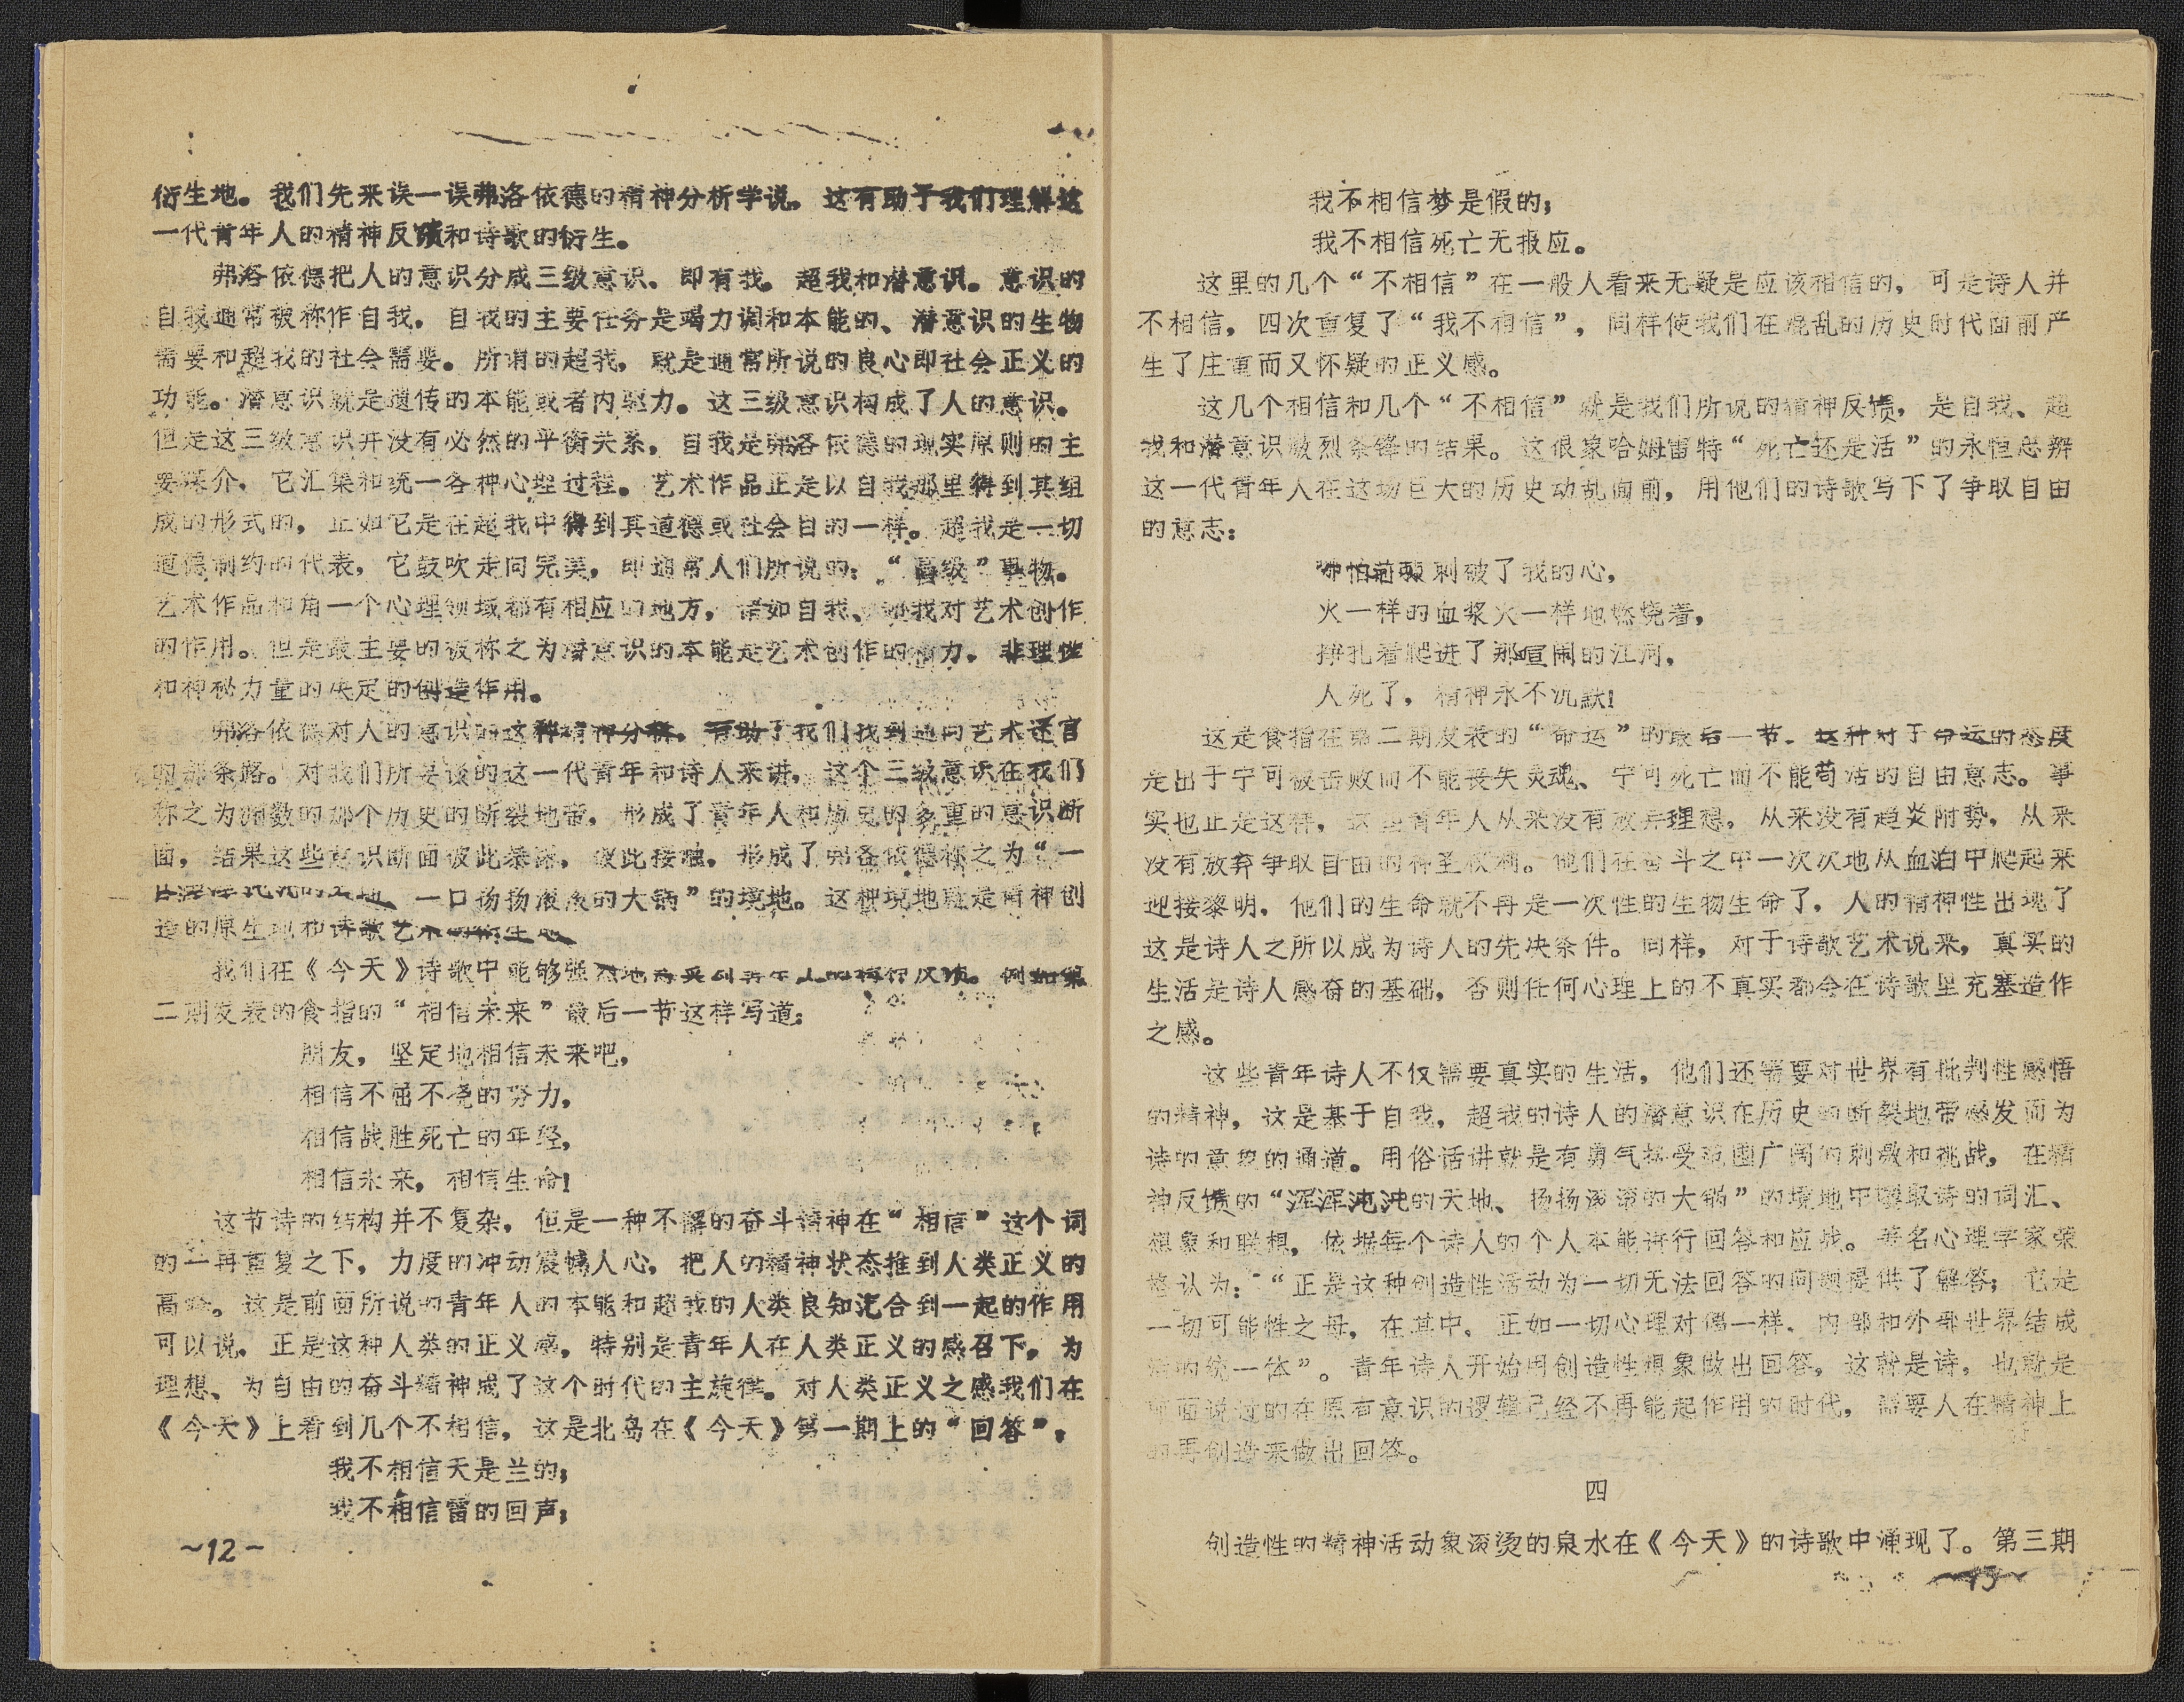 衍生地。我们先来误一误弗洛依德的精神分析学说。这有助于我们理解这
一代青年人的精神反馈和诗歌的衍生。
弗洛依德把人的意识分成三级意识。即有我。超我和潜意识。意识的
自我通常被称作自我。自我的主要任务是竭力调和本能的、潜意识的生物
需要和超我的社会需要。所谓的超我，就是通常所说的良心即社会正义的
功能。潜意识就是遗传的本能或者内驱力。这三级意识构成了人的意识。
但是这三级意识并没有必然的平衡关系，自我是弗洛依德的现实原则的主
要媒介，它汇集和统一各种心理过程。艺术作品正是以自我那里得到其组
成的形式的，正如它是在超我中得到其道德或社会目的一样。超我是一切
道德制约的代表，它鼓吹走向完美，即通常人们所说的：“高级”事物。
艺术作品和角一个心理领域都有相应的地方，诸如自我、超我对艺术创作
的作用。但是最主要的被称之为潜意识的本能是艺术创作的动力，非理性
和神秘力量的决定的创造作用。
弗洛依德对人的意识的这种精神分析。有助了我们找到通向艺术迷宫
的那条路。对我们所要谈的这一代青年和诗人来讲，这个三级意识在我们
称之为洲数的那个历史的断裂地带，形成了青年人和历史的多重的意识断
面，结果这些意识断面彼此渗深，彼此接触，形成了弗洛依德称之为“一
一口扬扬滚滚的大锅”的境地。这种境地就是精神创
造的原生地和诗歌艺术的衍生地
我们在《今天》诗歌中能够强烈地感受到青年人的精神反馈。例如第
二期发表的食指的“相信未来”最后一节这样写道：
朋友，坚定地相信未来吧，
相信不屈不挠的努力，
相信战胜死亡的年轻，
相信未来，相信生命！
这节诗的结构并不复杂，但是一种不懈的奋斗精神在“相信”这个词
的一再重复之下，力度的冲动震憾人心，把人的精神状态推到人类正义的
高峰。这是前面所说的青年人的本能和超我的人类良知汇合到一起的作用
可以说，正是这种人类的正义感，特别是青年人在人类正义的感召下，为
理想、为自由的奋斗精神成了这个时代的主旋律。对人类正义之感我们在
《今天》上看到几个不相信，这是北岛在《今天》第一期上的“回答”，
我不相信天是兰的；
我不相信雷的回声；
~12~
我不相信梦是假的；
我不相信死亡无报应。
这里的几个“不相信”在一般人看来无疑是应该相信的，可是诗人并
不相信，四次重复了“我不相信”，同样使我们在混乱的历史时代面前产
生了庄重而又怀疑的正义感。
这几个相信和几个“不相信”就是我们所说的精神反馈，是自我、超
我和潜意识激烈条锋的结果。这很象哈姆雷特“死亡还是活”的永恒思辨
这一代青年人在这场巨大的历史动乱面前，用他们的诗歌写下了争取自由
的意志：
哪怕荆棘刺破了我的心，
火一样的血浆火一样地燃烧着，
挣扎着爬进了那喧闹的江河，
人死了，精神永不沉默！
这是食指在第二期发表的“命运”的最后一节。这种对于命运的态度
是出于宁可被击败而不能丧失灵魂、宁可死亡而不能苟活的自由意志。事
实也正是这样，这些青年人从来没有放弃理想，从来没有趋炎附势，从来
没有放弃争取自由的神圣权利。他们在奋斗之中一次次地从血泊中爬起来
迎接黎明，他们的生命就不再是一次性的生物生命了，人的精神性出现了
这是诗人之所以成为诗人的先决条件。同样，对于诗歌艺术说来，真实的
生活是诗人感奋的基础，否则任何心理上的不真实都会在诗歌里充塞造作
之感。
这些青年诗人不仅需要真实的生活，他们还需要对世界有批判性感悟
的精神，这是基于自我，超我的诗人的潜意识在历史的断裂地带感发而为
诗的意象的通道。用俗话讲就是有勇气接受范围广阔的刺激和挑战，在精
神反馈的“浑浑沌沌的天地、扬扬滚滚的大锅”的境地中攫取诗的词汇、
想象和联想，依据每个诗人的个人本能进行回答和应战。著名心理学家荣
格认为：“正是这种创造性活动为一切无法回答的问题提供了解答；它是
一切可能性之母，在其中，正如一切心理对偶一样，内部和外部世界结成
活的统一体”。青年诗人开始用创造性想象做出回答，这就是诗，也就是
前面说过的在原有意识的逻辑已经不再能起作用的时代，需要人在精神上
的再创造来做出回答。
四
创造性的精神活动象滚烫的泉水在《今天》的诗歌中涌现了。第三期
~13~